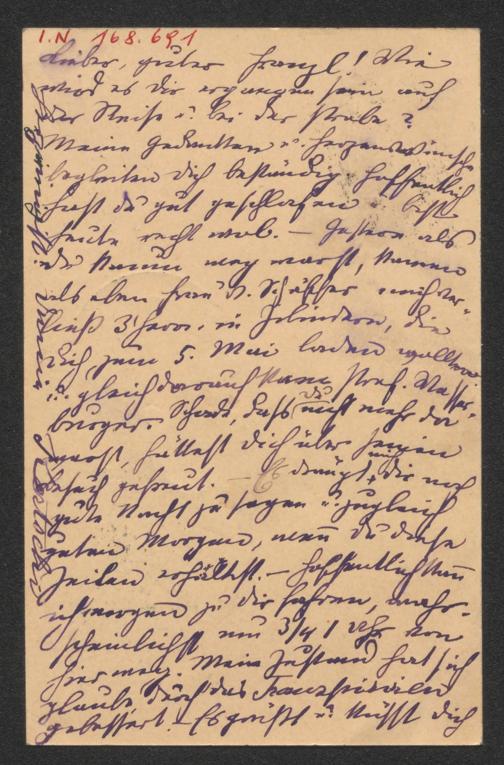 I.N. 168.691
Lieber, guter Franzl! Wie
wird es dir ergangen sein auf
der Reise u. bei der Probe?
Meine Gedanken u. Herzenswünsche
begleiten dich beständig hoffentlich
hast du gut geschlafen bist
heute recht wol. – Gestern als
du kaum weg warst, kamen
als eben Frau
ließ 3 Herrn. in Zilindern, die
dich zum 5. Mai laden wollten
u. gleich darauf kam Prof. Wasser-
burger. Schade, daß du nicht mehr da
warst, hättest dich über seinen
besuch gefreut. – Es drängt mich, dir noch
gute Nacht zu sagen u. zugleich
guten Morgen, wenn du diese
Zeilen erhältst. – Hoffentlich kann
ich morgen zu dir fahren, wahr-
scheinlichst um 3/4 1 Uhr von
hier weg. Mein Zustand hat sich
glaube, durch das
gebessert. – Es grüßt u. küsst dich